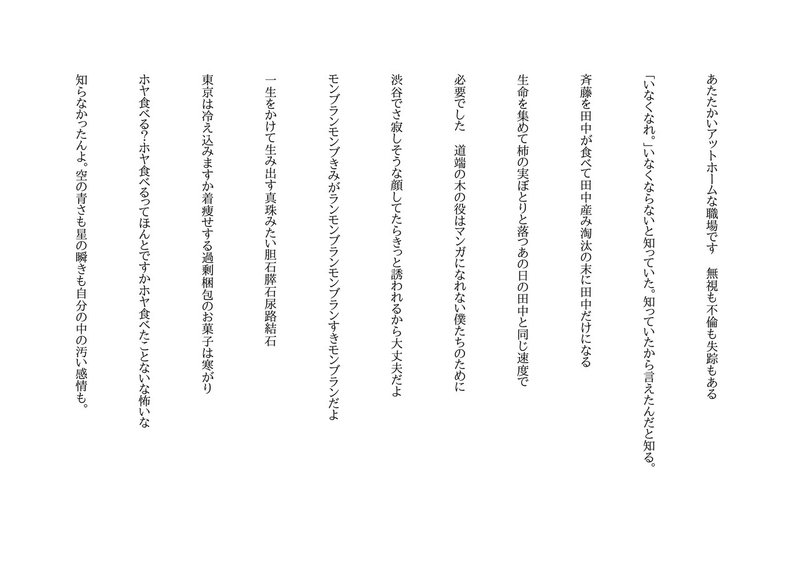 あたたかいアットホームな職場です　無視も不倫も失踪もある
「いなくなれ。」いなくならないと知っていた。知っていたから言えたんだと知る。
斉藤を田中が食べて田中産み淘汰の末に田中だけになる
生命を集めて柿の実ぼとりと落つあの日の田中と同じ速度で
必要でした　道端の木の役はマンガになれない僕たちのために
渋谷でさ寂しそうな顔してたらきっと誘われるから大丈夫だよ
モンブランモンブきみがランモンブランモンブランすきモンブランだよ
一生をかけて生み出す真珠みたい胆石膵石尿路結石
東京は冷え込みますか着痩せする過剰梱包のお菓子は寒がり
ホヤ食べる？ホヤ食べるってほんとですかホヤ食べたことないな怖いな
知らなかったんよ。空の青さも星の瞬きも自分の中の汚い感情も。